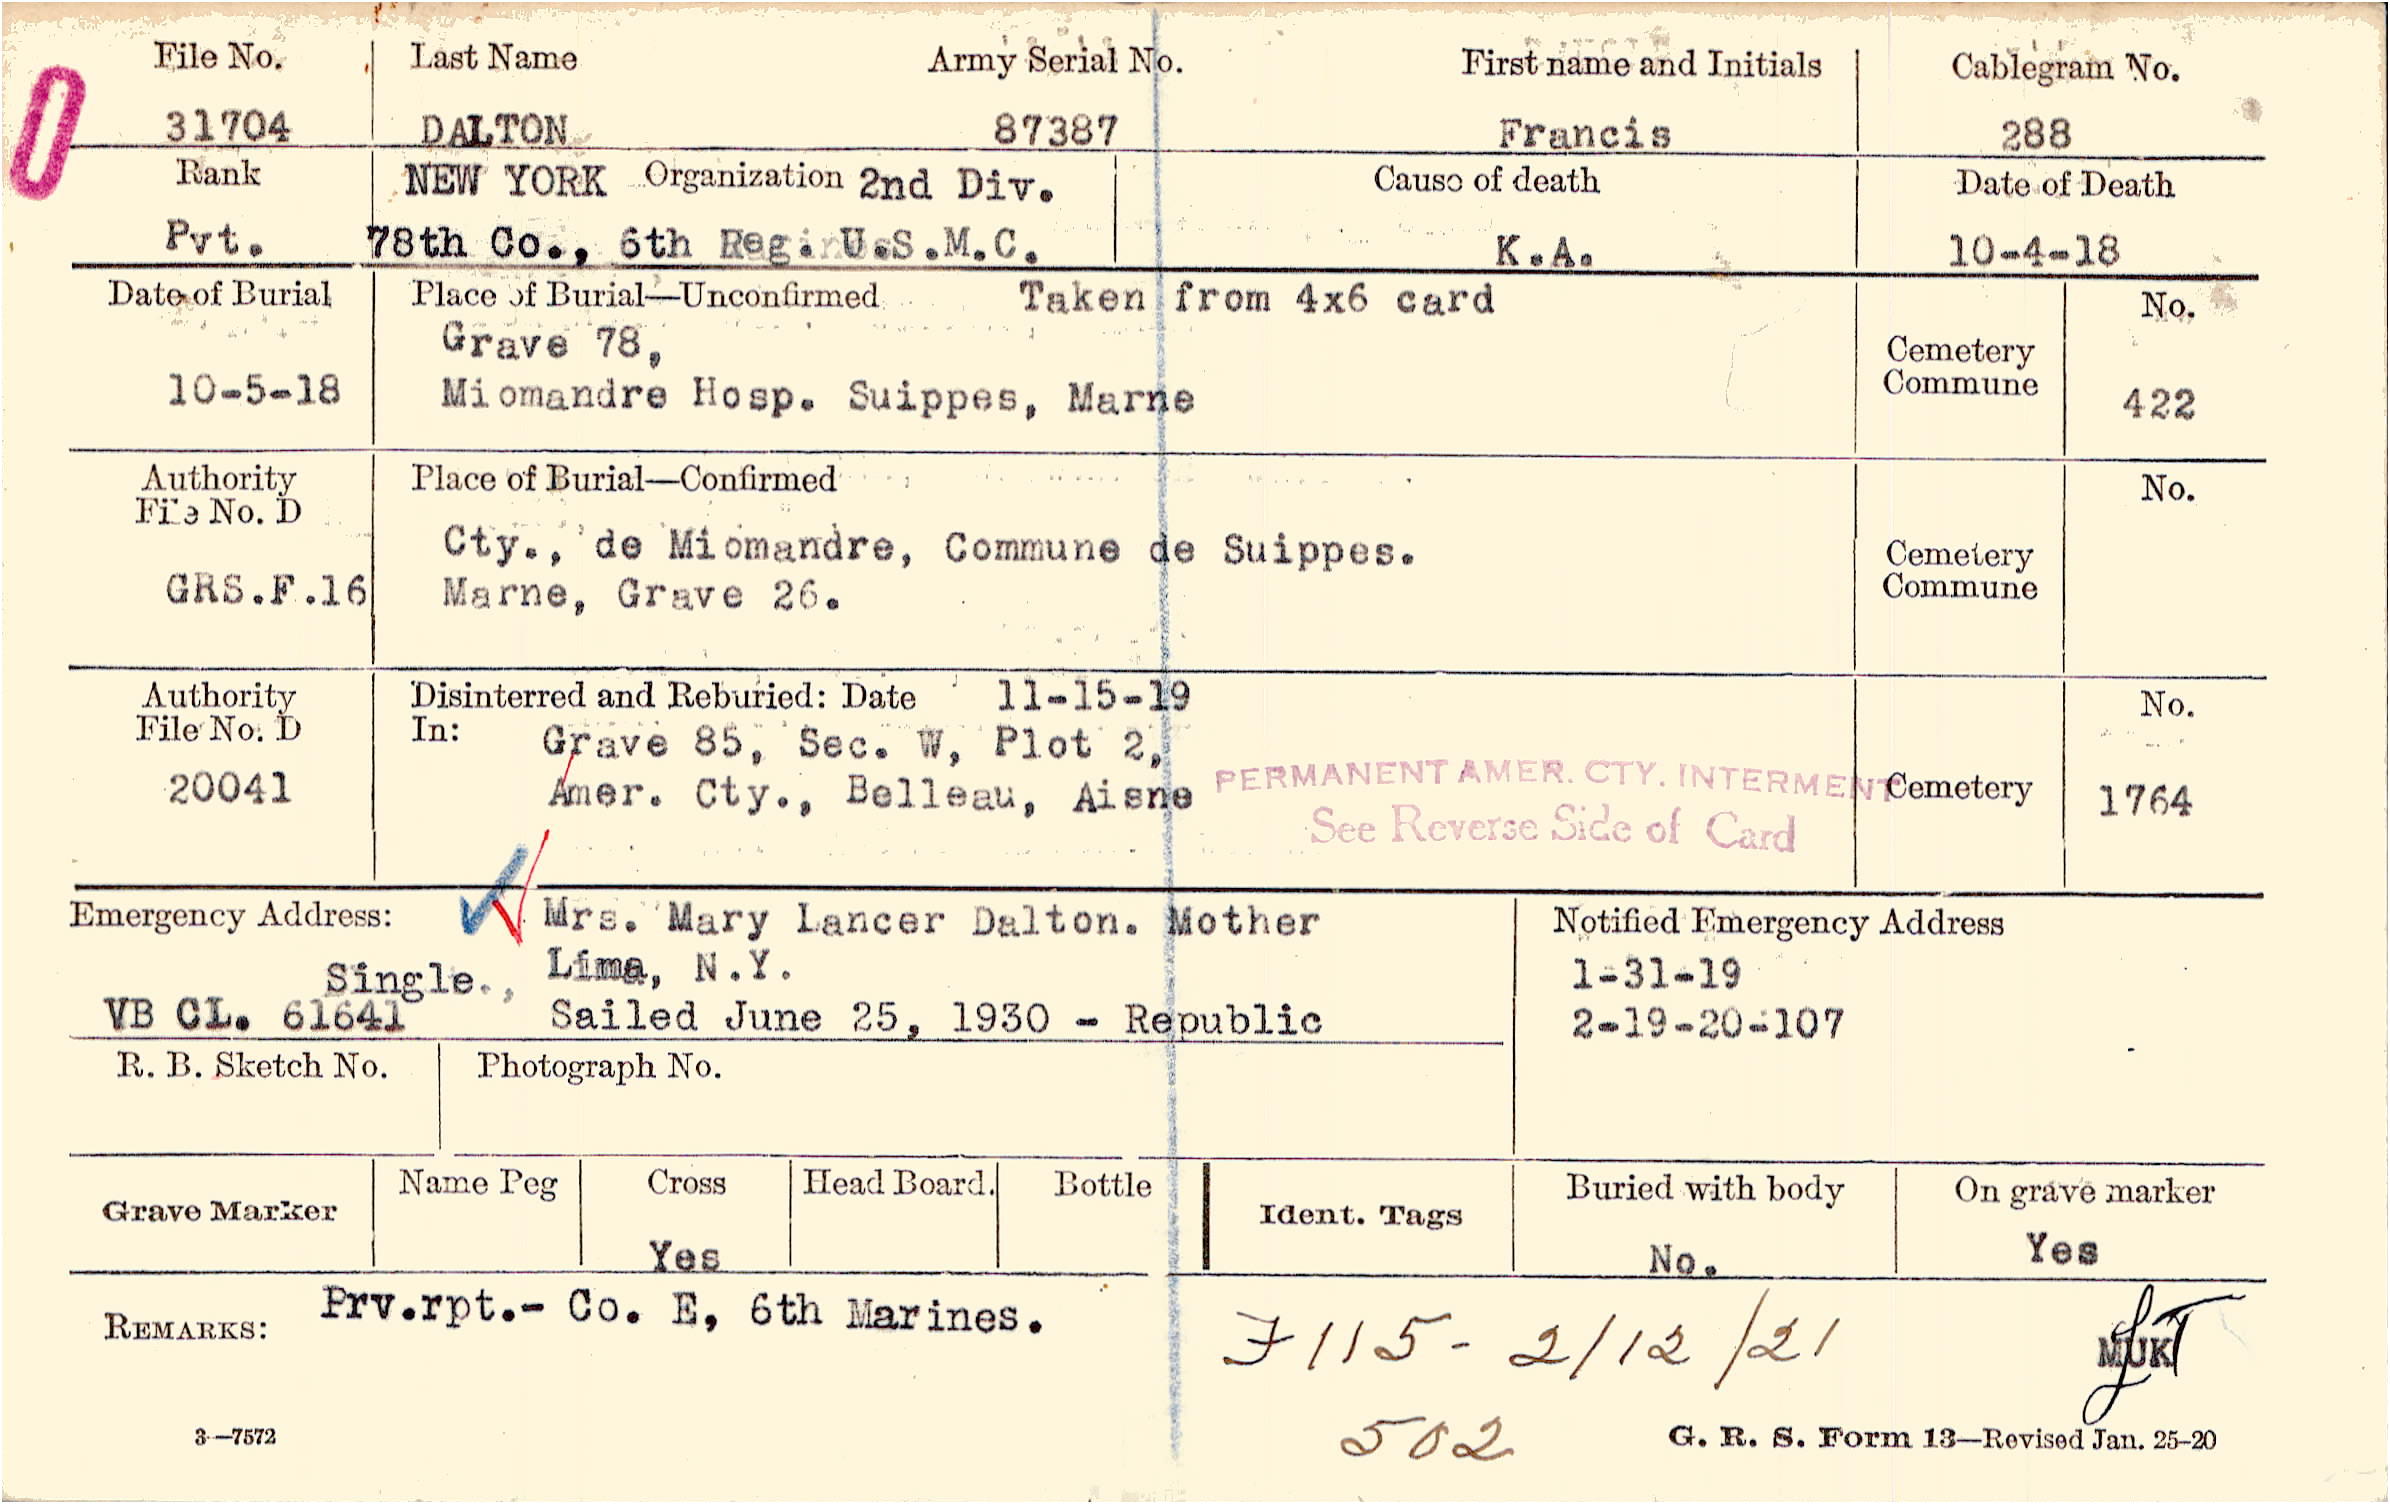 File No. Last Name Army Serial No. First name and Initials Cablegram No.
31704 DALTON 87387 Francis 288
Rank NEW YORK Organization 2nd Div. Cause of death Date of Death
Pvt. 78th Co., 6th Reg. U.S.M.C. K.A. 10-4-18
Date of Burial Place of Burial—Unconfirmed Taken from 4x6 card No.
Grave 78,
10-5-18 Miomandre Hosp. Suippes, Marne Cemetery
Commune 422
Authority Place of Burial—Confirmed No.
File No. D
Cty., de Miomandre, Commune de Suippes. Cemetery
GRS.F.16 Marne, Grave 26. Commune
Authority Disinterred and Reburied: Date 11-15-19 No.
File No. D In: Grave 85, Sec. W, Plot 2,
20041 Amer. Cty., Belleau, Aisne PERMANENT AMER. CTY. INTERMENT Cemetery 1764
See Reverse Side of Card
Emergency Address: Mrs. Mary Lancer Dalton. Mother Notified Emergency Address
Single., Lima, N.Y. 1-31-19
VB CL. 61641 Sailed June 25, 1930 - Republic 2-19-20-107
R. B. Sketch No. Photograph No.
Grave Marker Name Peg Cross Head Board. Bottle Ident. Tags Buried with body On grave marker
Yes No. Yes
REMARKS: Prv.rpt.- Co. E, 6th Marines.
F115 - 2/12/21 MUK
502
3—7572 G. R. S. Form 13—Revised Jan. 25-20